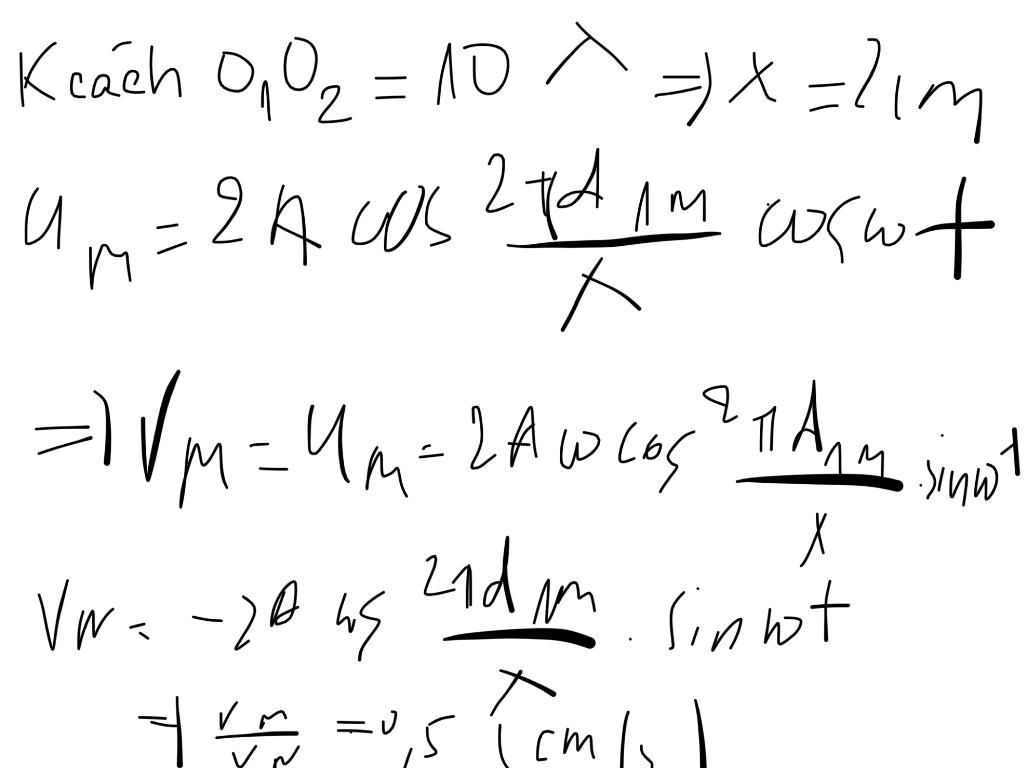 Kcách O₁O₂ = 10 λ => λ = 21 m
u_M = 2A cos 2πd_1M / λ cosωt
=> V_M = u_M = 2Aω cos 2πd_1M / λ . sinωt
V_N = -2A cos 2πd_1M / λ . sin ωt
=> V_M / V_N = 0,5 (cm/s)